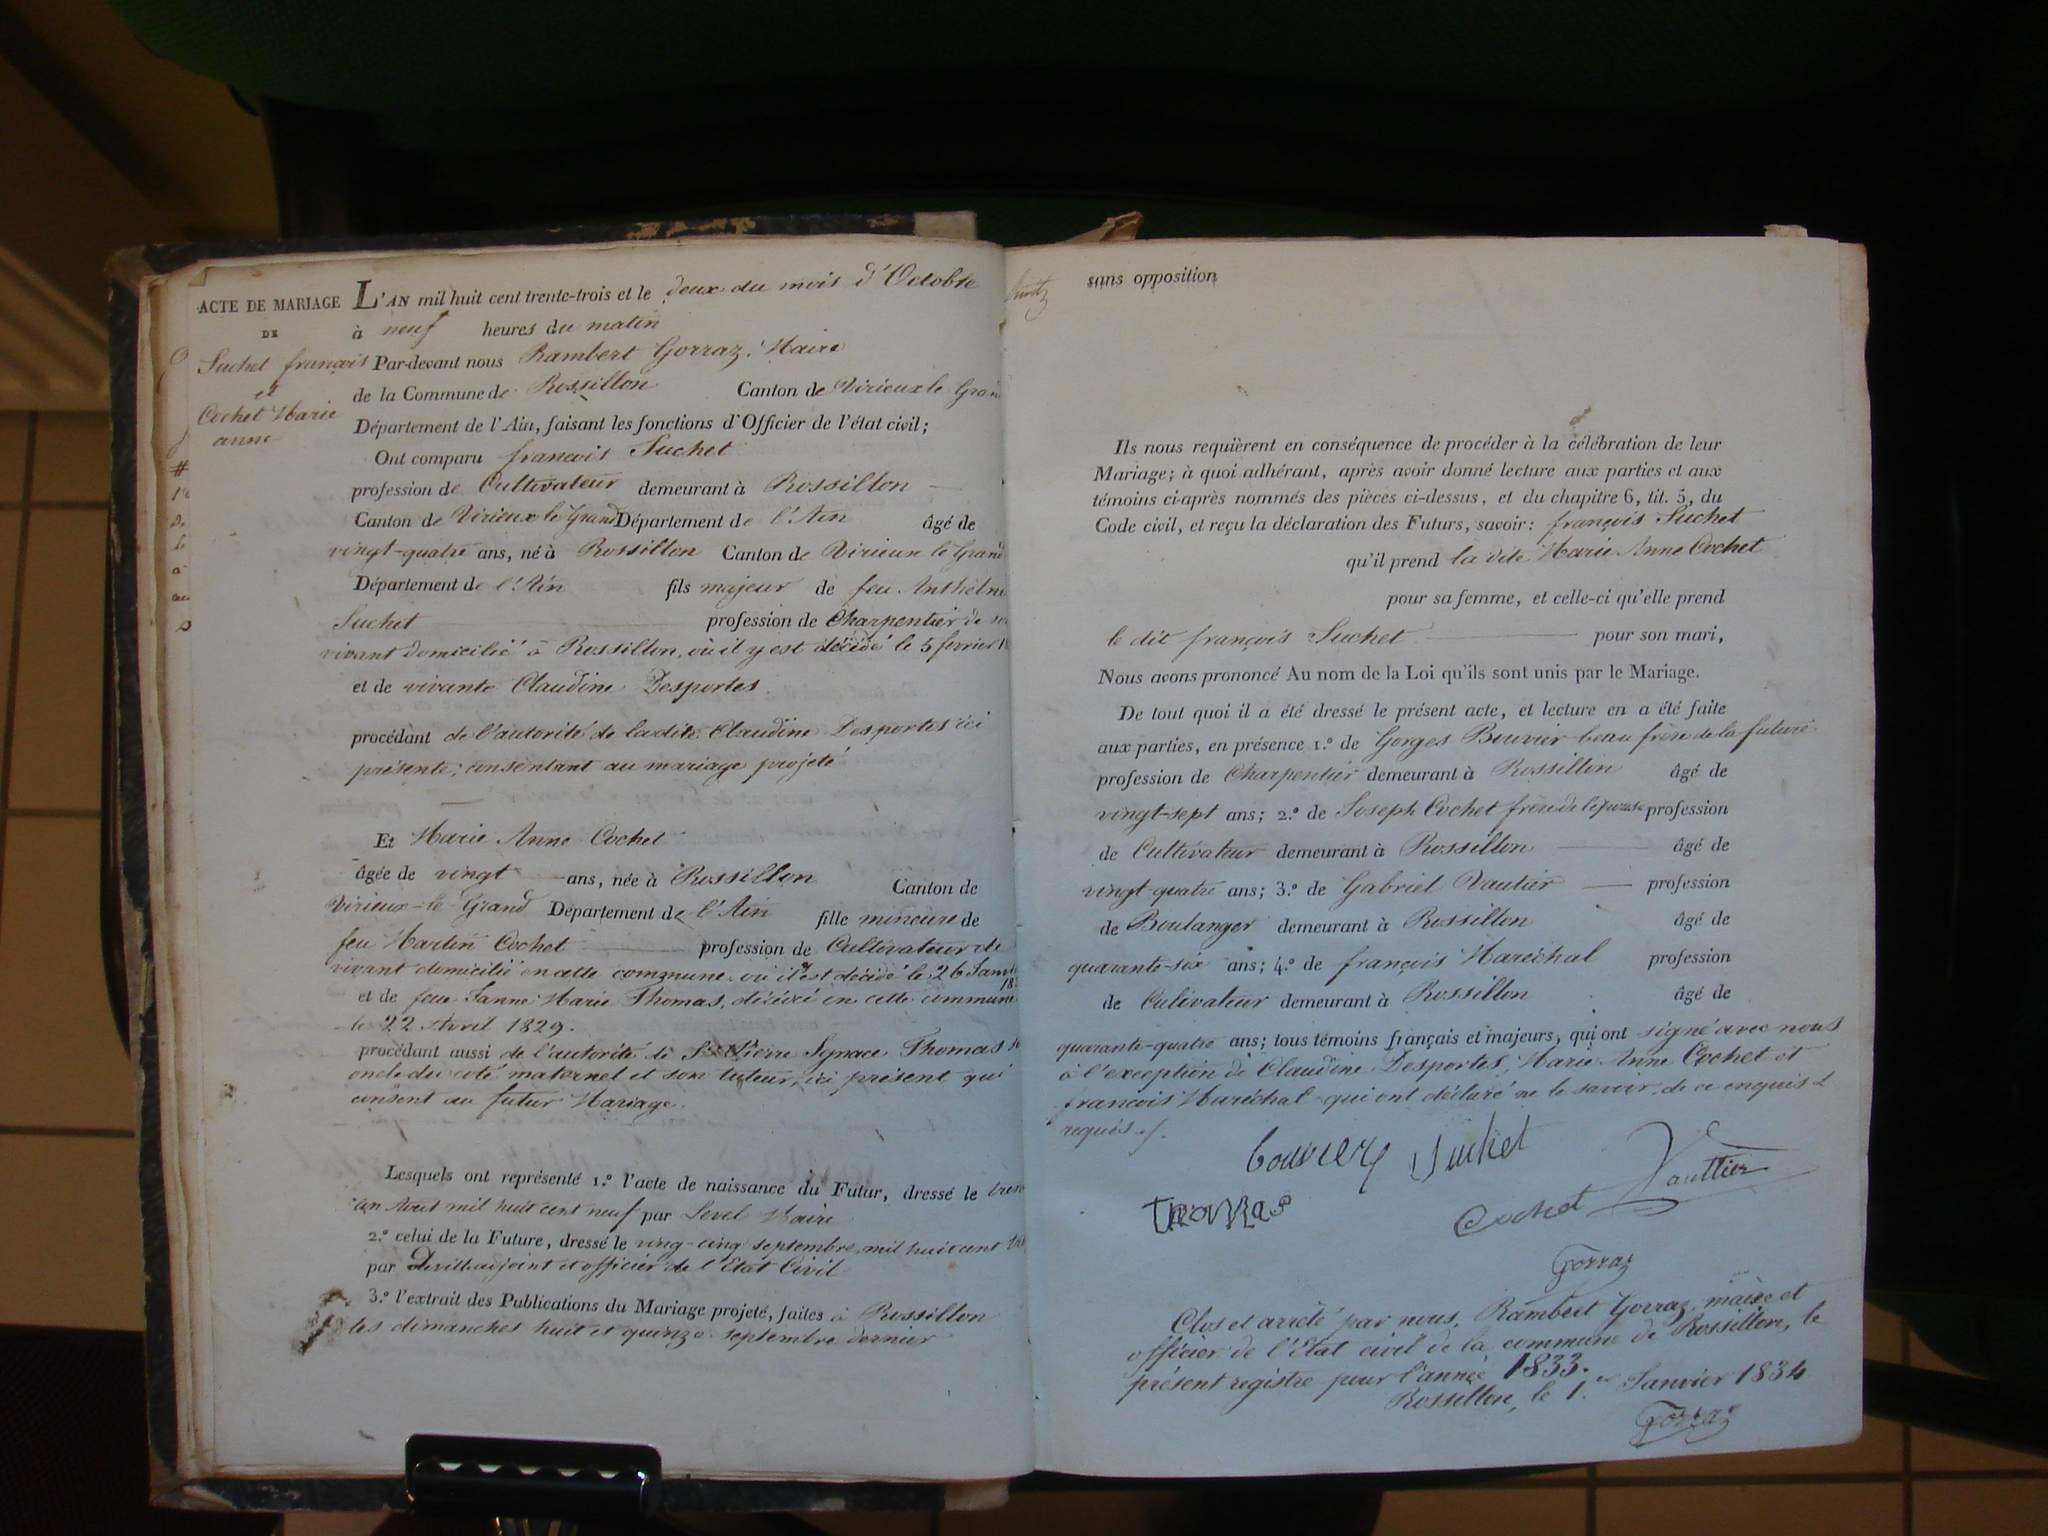 ACTE DE MARIAGE
DE
Suchet françois
et
Cochet Marie
anne
L'AN mil huit cent trente-trois et le deux du mois d'Octobre
à neuf heures du matin
Par-devant nous Rambert Gorraz, Maire
de la Commune de Rossillon Canton de Virieux le Gran
Département de l'Ain, faisant les fonctions d'Officier de l'état civil;
Ont comparu françois Suchet
profession de Cultivateur demeurant à Rossillon
Canton de Virieux le Grand Département de l'Ain âgé de
vingt-quatre ans, né à Rossillon Canton de Virieux le Grand
Département de l'Ain fils majeur de feu Anthelme
Suchet profession de Charpentier de
vivant domicilié à Rossillon, où il y est décédé le 5 fevrier
et de vivante Claudine Desportes.
procédant de l'autorité de la dite Claudine Desportes ici
présente; consentant au mariage projeté
Et Marie Anne Cochet
âgée de vingt ans, née à Rossillon Canton de
Virieux-le-Grand Département de l'Ain fille mineure de
feu Martin Cochet profession de Cultivateur de
vivant domicilié en cette commune où il y est décédé le 26 Janv
18
et de feue Janne Marie Thomas, décédé en cette commune
le 22 Avril 1829.
procédant aussi de l'autorité de Sr Pierre Ignace Thomas
oncle du coté maternel et son tuteur, ici présent qui
consent au futur Mariage.
Lesquels ont représenté 1.º l'acte de naissance du Futur, dressé le
an Aout mil huit cent neuf par Level Maire
2.º celui de la Future, dressé le ving-cinq septembre mil huit cent
par adjoint et officier de l'Etat Civil
3.º l'extrait des Publications du Mariage projeté, faites à Rossillon
les dimanches huit et quinze septembre dernier
sans opposition
Ils nous requièrent en conséquence de procéder à la célébration de leur
Mariage; à quoi adhérant, après avoir donné lecture aux parties et aux
témoins ci-après nommés des pièces ci-dessus, et du chapitre 6, tit. 5, du
Code civil, et reçu la déclaration des Futurs, savoir: françois Suchet
qu'il prend la dite Marie Anne Cochet
pour sa femme, et celle-ci qu'elle prend
le dit françois Suchet pour son mari,
Nous avons prononcé Au nom de la Loi qu'ils sont unis par le Mariage.
De tout quoi il a été dressé le présent acte, et lecture en a été faite
aux parties, en présence 1.º de Gorges Bouvier beau frère de la future
profession de Charpentier demeurant à Rossillon âgé de
vingt-sept ans; 2.º de Joseph Cochet frère de l'épouse profession
de Cultivateur demeurant à Rossillon âgé de
vingt quatre ans; 3.º de Gabriel Vautier profession
de Boulanger demeurant à Rossillon âgé de
quarante-six ans; 4.º de françois Maréchal profession
de Culivateur demeurant à Rossillon âgé de
quarante-quatre ans; tous témoins français et majeurs, qui ont signé avec nous
à l'exception de Claudine Desportes, Marie Anne Cochet et
françois Maréchal qui ont déclaré ne le savoir de ce enquis &
requis ./.
bouvier Suchet
Vauttier
Thomas
Cochet
Gorraz
Clos et arrêté par nous, Rambert Gorraz, maire et
officier de l'Etat civil de la commune de Rossillon, le
présent registre pour l'année 1833.
Rossillon, le 1.er Janvier 1834
Gorraz